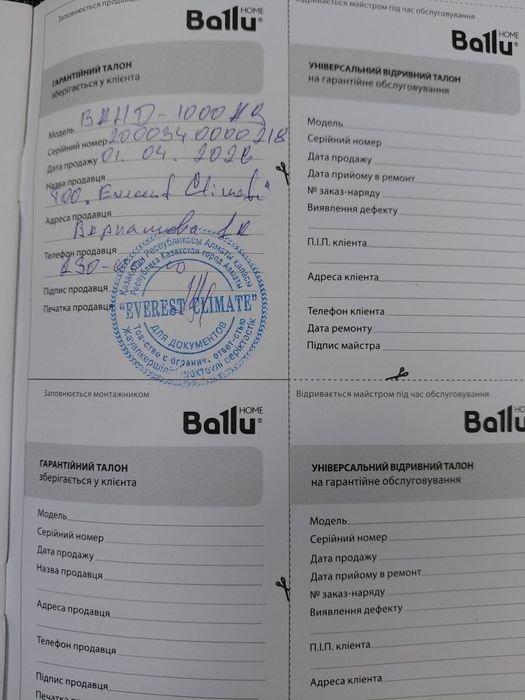 Заповнюється продавцем
Ballu® HOME
ГАРАНТІЙНИЙ ТАЛОН
зберігається у клієнта
Модель ВАНД-1000
Серійний номер 200034 0000218
Дата продажу 01.04.202
Назва продавця
"Everest Climate"
Адреса продавця
Варламова
Телефон продавця
Підпис продавця
Печатка продавця
Қазақстан Республикасы Алматы қаласы
Республика Казахстан город Алматы
"EVEREST CLIMATE"
ДЛЯ ДОКУМЕНТОВ
Тов-ство с огранич. ответ-стью
Жауапкершілігі шектеулі серіктестік
Відривається майстром під час обслуговування
Ballu® HOME
УНІВЕРСАЛЬНИЙ ВІДРИВНИЙ ТАЛОН
на гарантійне обслуговування
Модель
Серійний номер
Дата продажу
Дата прийому в ремонт
№ заказ-наряду
Виявлення дефекту
П.І.П. клієнта
Адреса клієнта
Телефон клієнта
Дата ремонту
Підпис майстра
Заповнюється монтажником
Ballu® HOME
ГАРАНТІЙНИЙ ТАЛОН
зберігається у клієнта
Модель
Серійний номер
Дата продажу
Назва продавця
Адреса продавця
Телефон продавця
Підпис продавця
Печатка
Відривається майстром під час обслуговування
Ballu
УНІВЕРСАЛЬНИЙ ВІДРИВНИЙ ТАЛОН
на гарантійне обслуговування
Модель
Серійний номер
Дата продажу
Дата прийому в ремонт
№ заказ-наряду
Виявлення дефекту
П.І.П. клієнта
Адреса клієнта